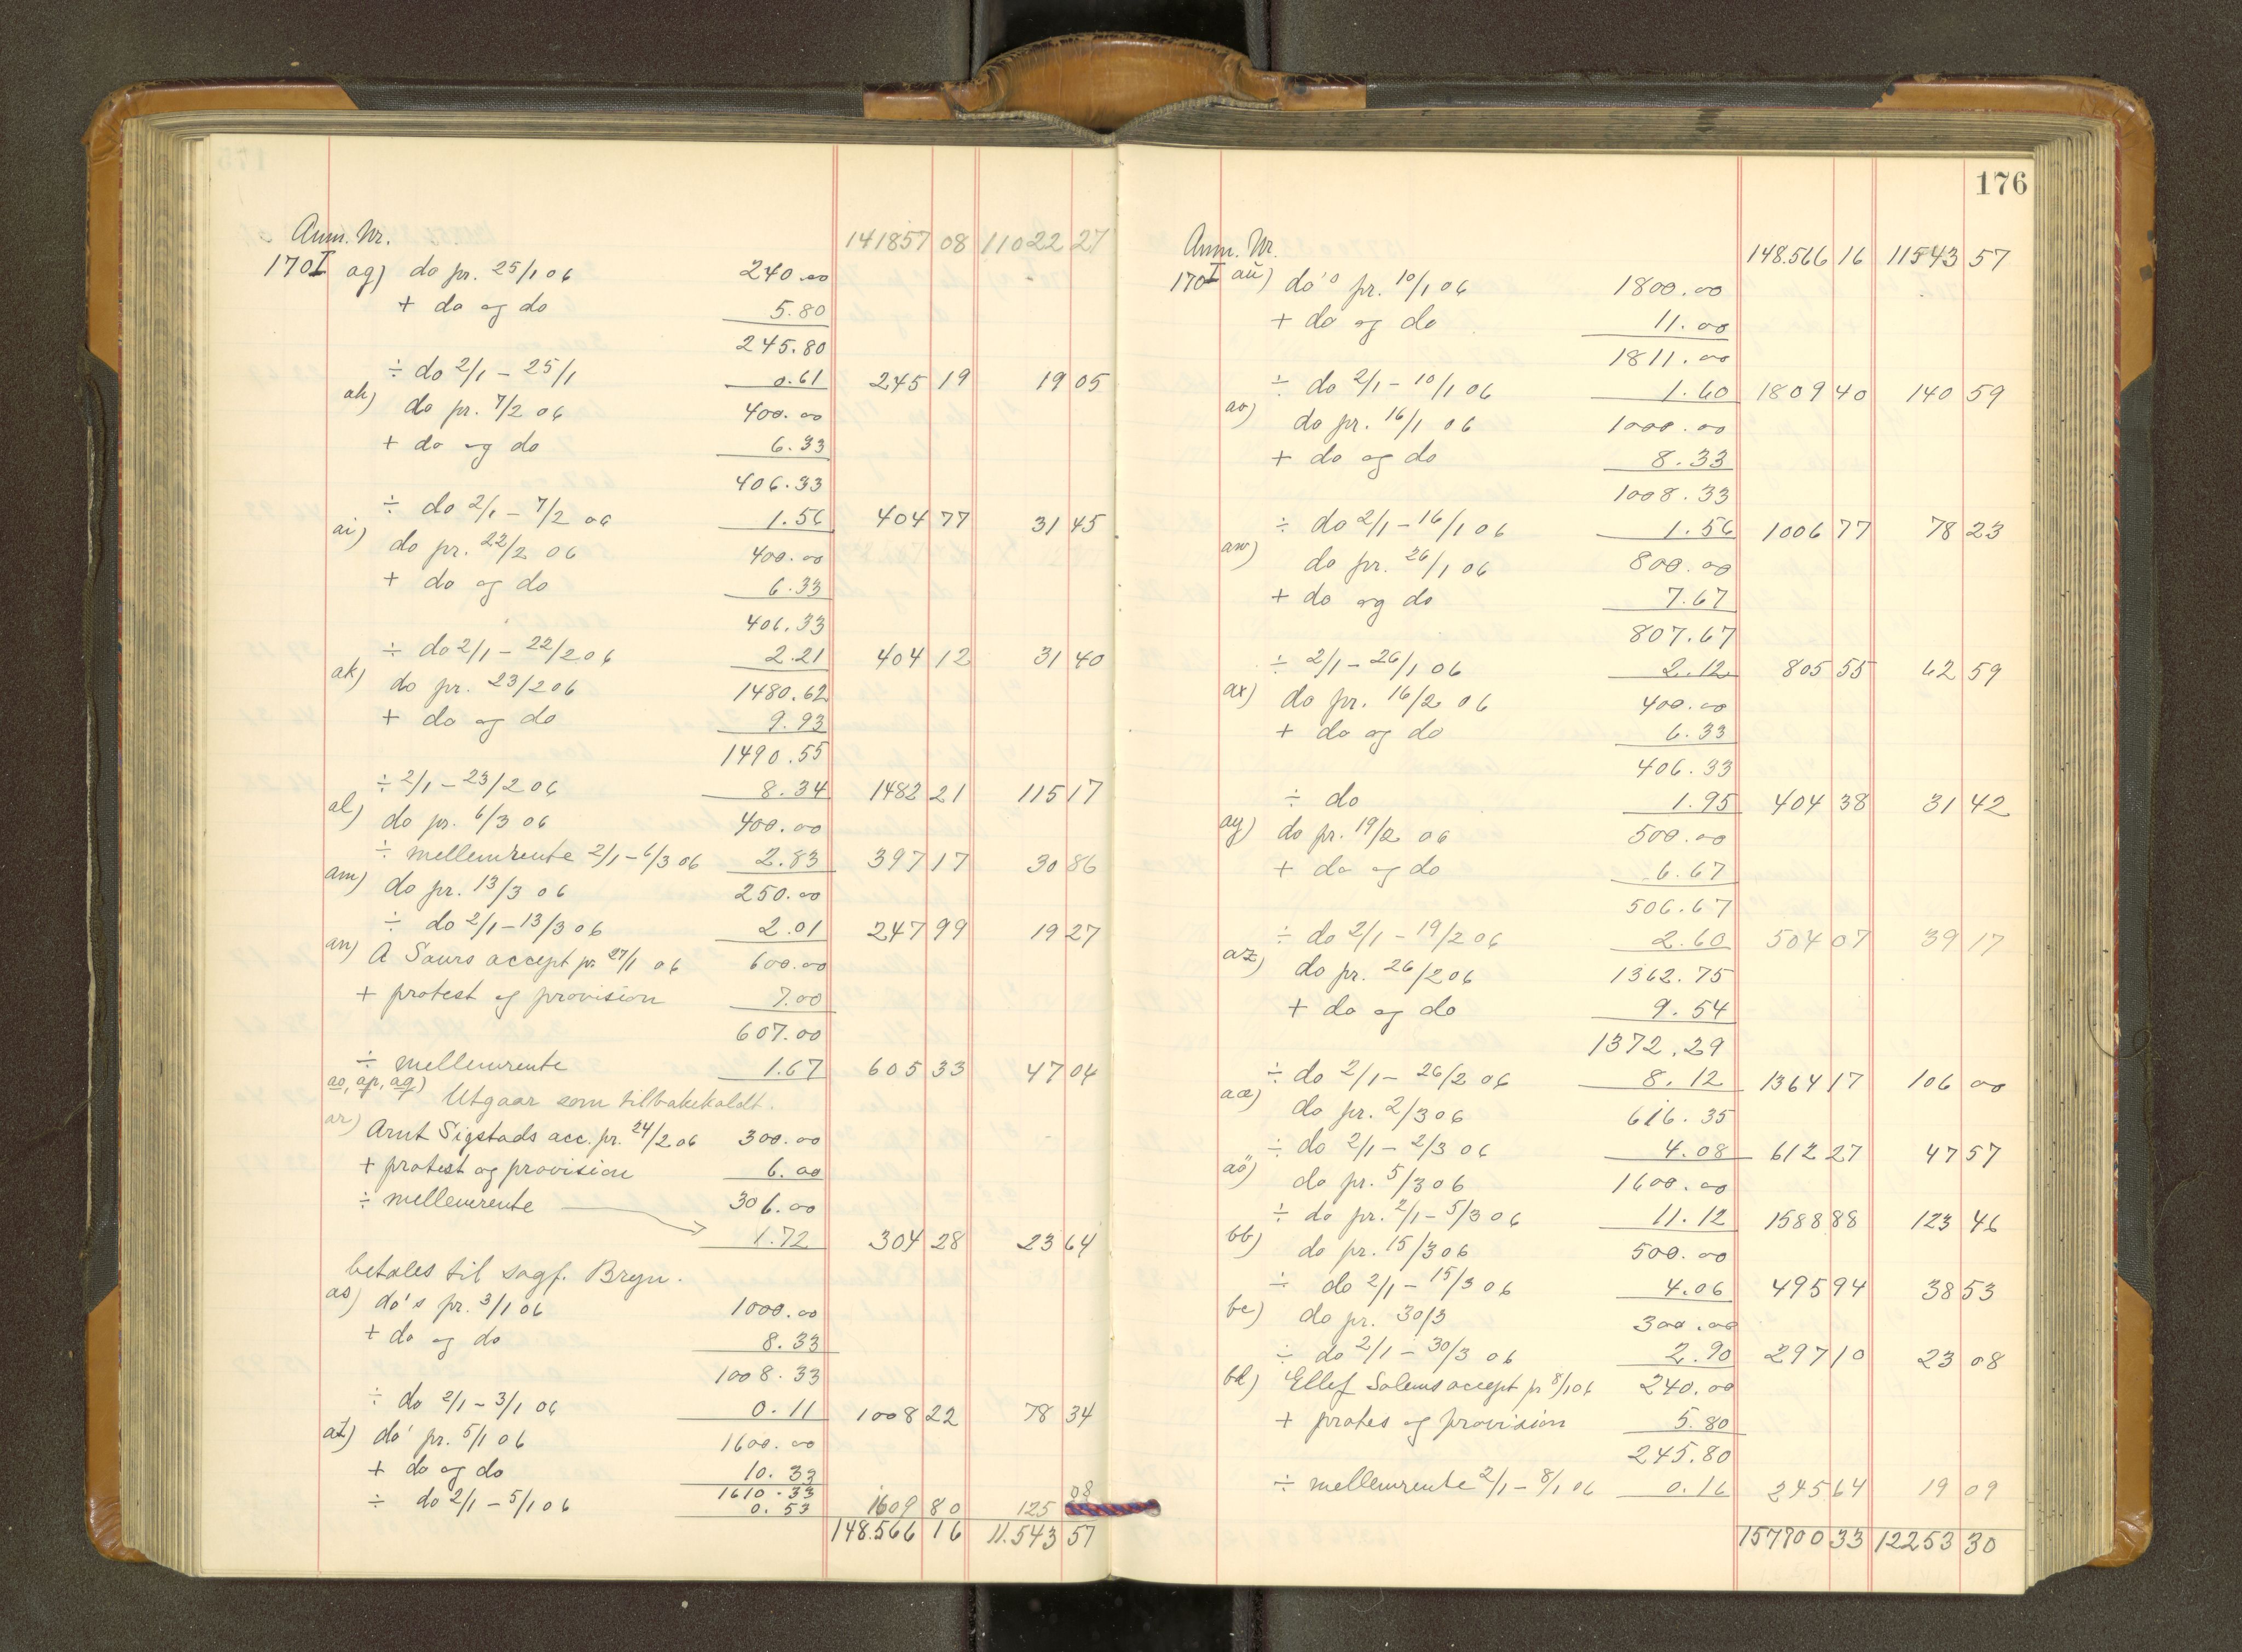 Anm. Nr. 141857 08 11022 27
170I ag) do pr. 25/1 06 240.00
+ do og do 5.80
245.80
÷ do 2/1 - 25/1 0.61 245 19 19 05
ah) do pr. 7/2 06 400.00
+ do og do 6.33
406.33
÷ do 2/1 - 7/2 06 1.56 404 77 31 45
ai) do pr. 22/2 06 400.00
+ do og do 6.33
406.33
÷ do 2/1 - 22/2 06 2.21 404 12 31 40
ak) do pr. 23/2 06 1480.62
+ do og do 9.93
1490.55
÷ 2/1 - 23/2 06 8.34 1482 21 115 17
al) do pr. 6/3 06 400.00
÷ mellemrente 2/1 - 6/3 06 2.83 397 17 30 86
am) do pr. 13/3 06 250.00
÷ do 2/1 - 13/3 06 2.01 247 99 19 27
an) A Saurs accept pr. 27/1 06 600.00
+ protest og provision 7.00
607.00
÷ mellemrente 1.67 605 33 47 04
ao, ap, aq) Utgaar som tilbakekaldt.
ar) Arnt Sigstads acc. pr. 24/2 06 300.00
+ protest og provision 6.00
÷ mellemrente 306.00
1.72 304 28 23 64
betales til sagf. Bryn.
as) do's pr. 3/1 06 1000.00
+ do og do 8.33
1008.33
÷ do 2/1 - 3/1 06 0.11 1008 22 78 34
at) do' pr. 5/1 06 1600.00
+ do og do 10.33
1610.33
÷ do 2/1 - 5/1 06 0.53 1609 80 125 08
148.566 16 11.543 57
176
Anm. Nr. 148.566 16 11543 57
170I au) do's pr. 10/1 06 1800.00
+ do og do 11.00
1811.00
÷ do 2/1 - 10/1 06 1.60 1809 40 140 59
av) do pr. 16/1 06 1000.00
+ do og do 8.33
1008.33
÷ do 2/1 - 16/1 06 1.56 1006 77 78 23
aw) do pr. 26/1 06 800.00
+ do og do 7.67
807.67
÷ 2/1 - 26/1 06 2.12 805 55 62 59
ax) do pr. 16/2 06 400.00
+ do og do 6.33
406.33
÷ do 1.95 404 38 31 42
ay) do pr. 19/2 06 500.00
+ do og do 6.67
506.67
÷ do 2/1 - 19/2 06 2.60 504 07 39 17
az) do pr. 26/2 06 1362.75
+ do og do 9.54
1372.29
÷ do 2/1 - 26/2 06 8.12 1364 17 106 00
aæ) do pr. 2/3 06 616.35
÷ do 2/1 - 2/3 06 4.08 612 27 47 57
aö) do pr. 5/3 06 1600.00
÷ do pr. 2/1 - 5/3 06 11.12 1588 88 123 46
bb) do pr. 15/3 06 500.00
÷ do 2/1 - 15/3 06 4.06 495 94 38 53
bc) do pr. 30/3 300.00
÷ do 2/1 - 30/3 06 2.90 297 10 23 08
bd) Ellef Solems accept pr 8/1 06 240.00
+ protes og provision 5.80
245.80
÷ mellemrente 2/1 - 8/1 06 0.16 245 64 19 09
157700 33 12253 30